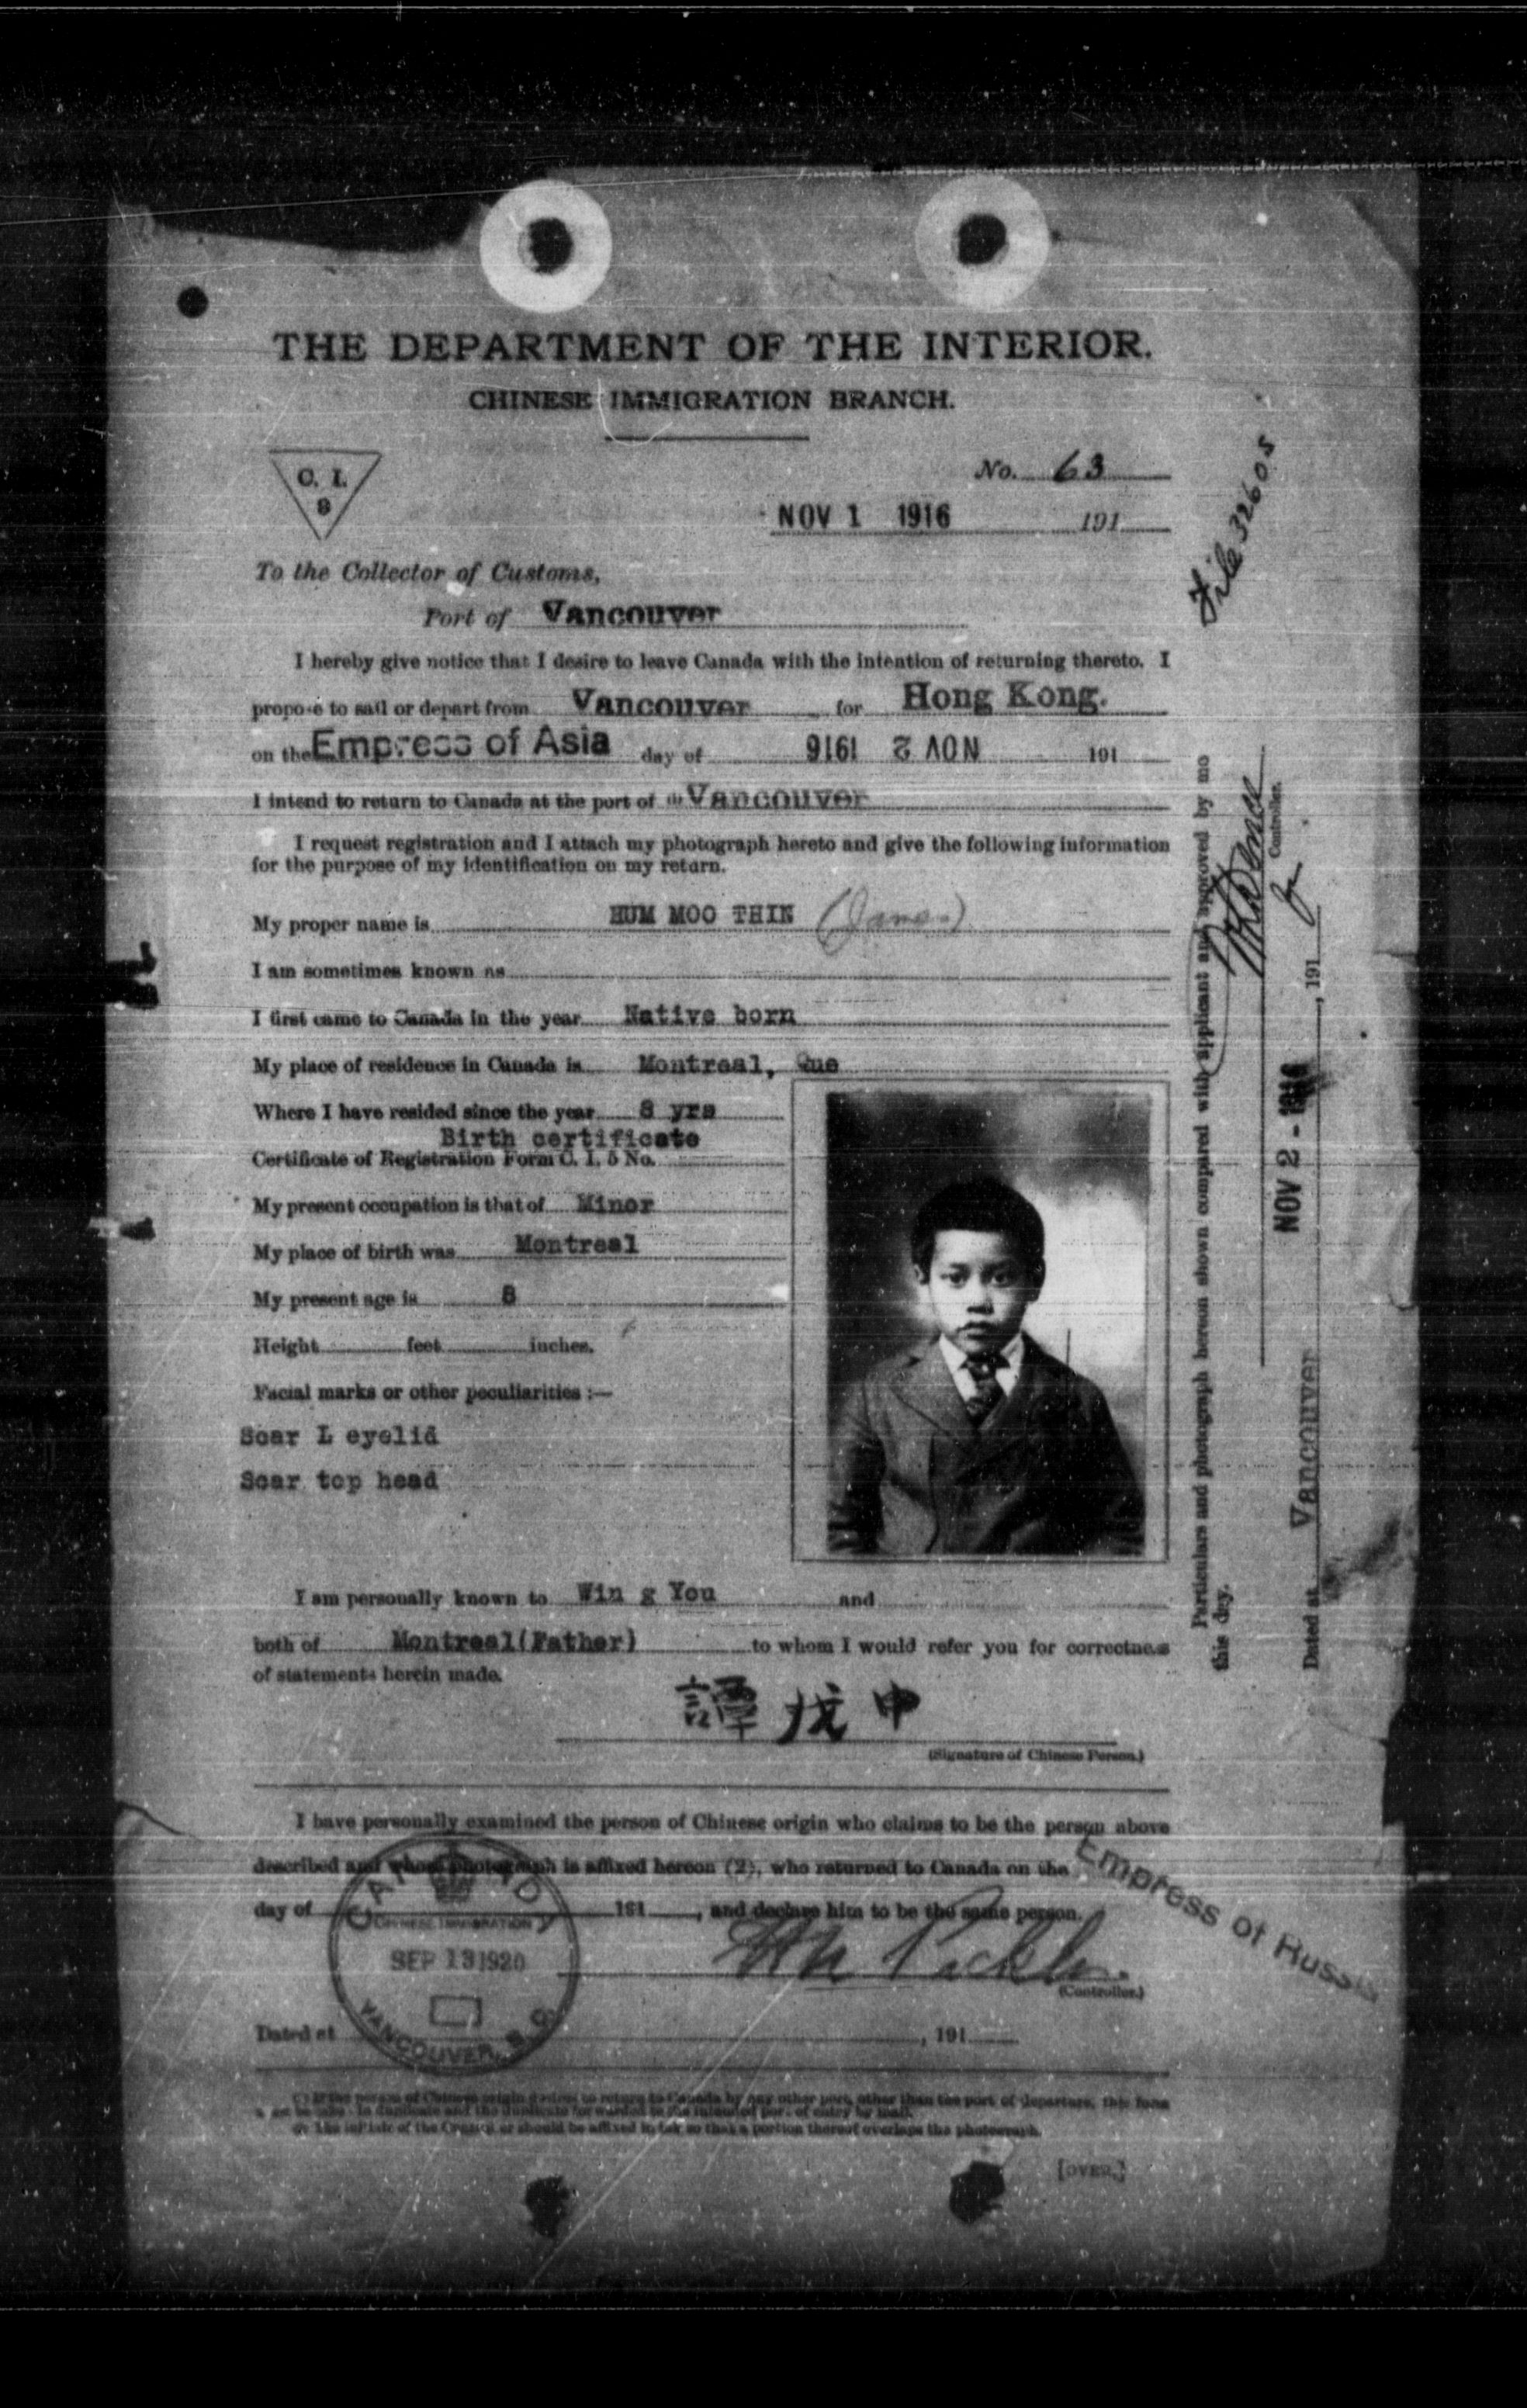 THE DEPARTMENT OF THE INTERIOR.
CHINESE IMMIGRATION BRANCH.
C. I.
9
No. 63
NOV 1 1916 191
File 32605
To the Collector of Customs,
Port of Vancouver
I hereby give notice that I desire to leave Canada with the intention of returning thereto. I
propose to sail or depart from Vancouver for Hong Kong.
on the Empress of Asia day of NOV 2 1916 191
I intend to return to Canada at the port of (1) Vancouver
I request registration and I attach my photograph hereto and give the following information
for the purpose of my identification on my return.
My proper name is HUM MOO THIN (James)
I am sometimes known as
I first came to Canada in the year Native born
My place of residence in Canada is Montreal, Que
Where I have resided since the year 8 yrs
Birth certificate
Certificate of Registration Form C. I. 5 No.
My present occupation is that of Minor
My place of birth was Montreal
My present age is 8
Height feet inches.
Facial marks or other peculiarities :—
Scar L eyelid
Scar top head
I am personally known to Win g You and
both of Montreal(Father) to whom I would refer you for correctness
of statements herein made.
譚 中
(Signature of Chinese Person.)
I have personally examined the person of Chinese origin who claims to be the person above
described and whose photograph is affixed hereon (2), who returned to Canada on the
Empress of Russia
day of 191 , and declare him to be the same person.
(Controller.)
CANADA
CHINESE IMMIGRATION
SEP 13 1920
VANCOUVER, B.C.
Dated at , 191
(1) If the person of Chinese origin desires to return to Canada by any other port, other than the port of departure, this form
[OVER.]
Particulars and photograph hereon shown compared with applicant and approved by me
this day.
Controller.
Dated at Vancouver NOV 2 - 1916 , 191